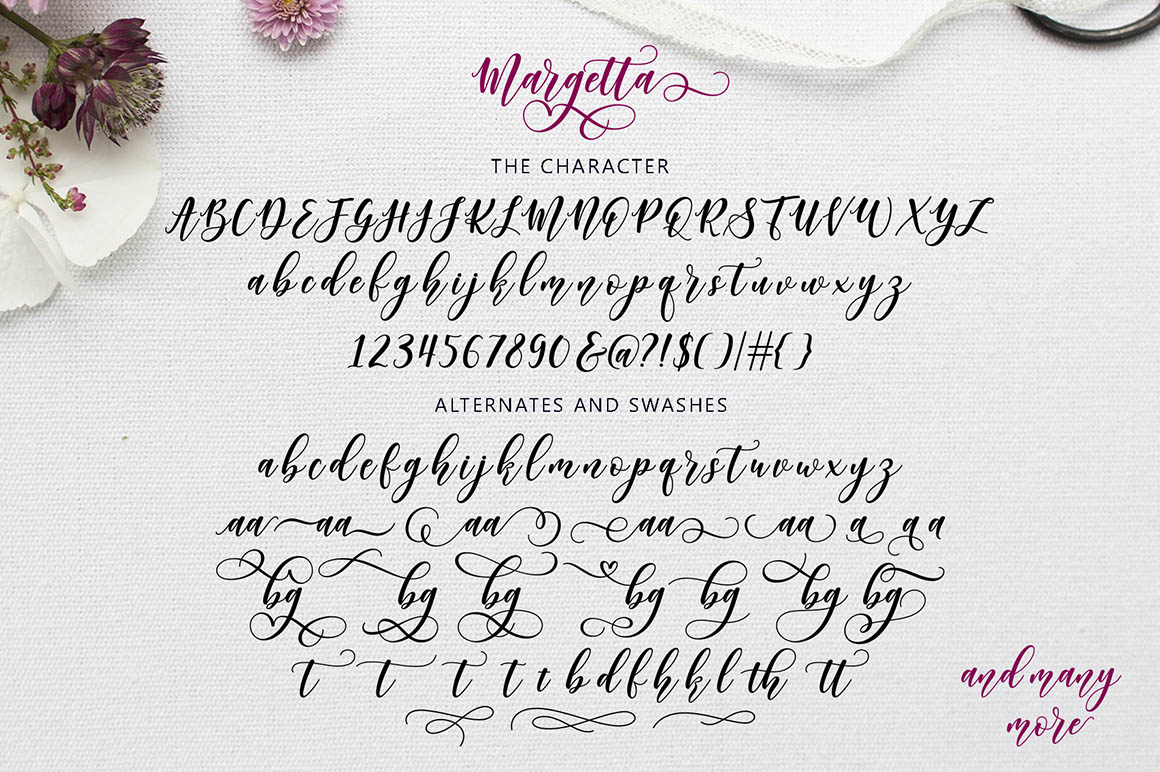 Margetta
THE CHARACTER
ABCDEFGHIJKLMNOPQRSTUVWXYZ
abcdefghijklmnopqrstuvwxyz
1234567890&@?!$()/#{}
ALTERNATES AND SWASHES
abcdefghijklmnopqrstuvwxyz
aa aa aa aa aa a a a
bg bg bg bg bg bg bg
t t t t t b d f h k l th tt
and many
more